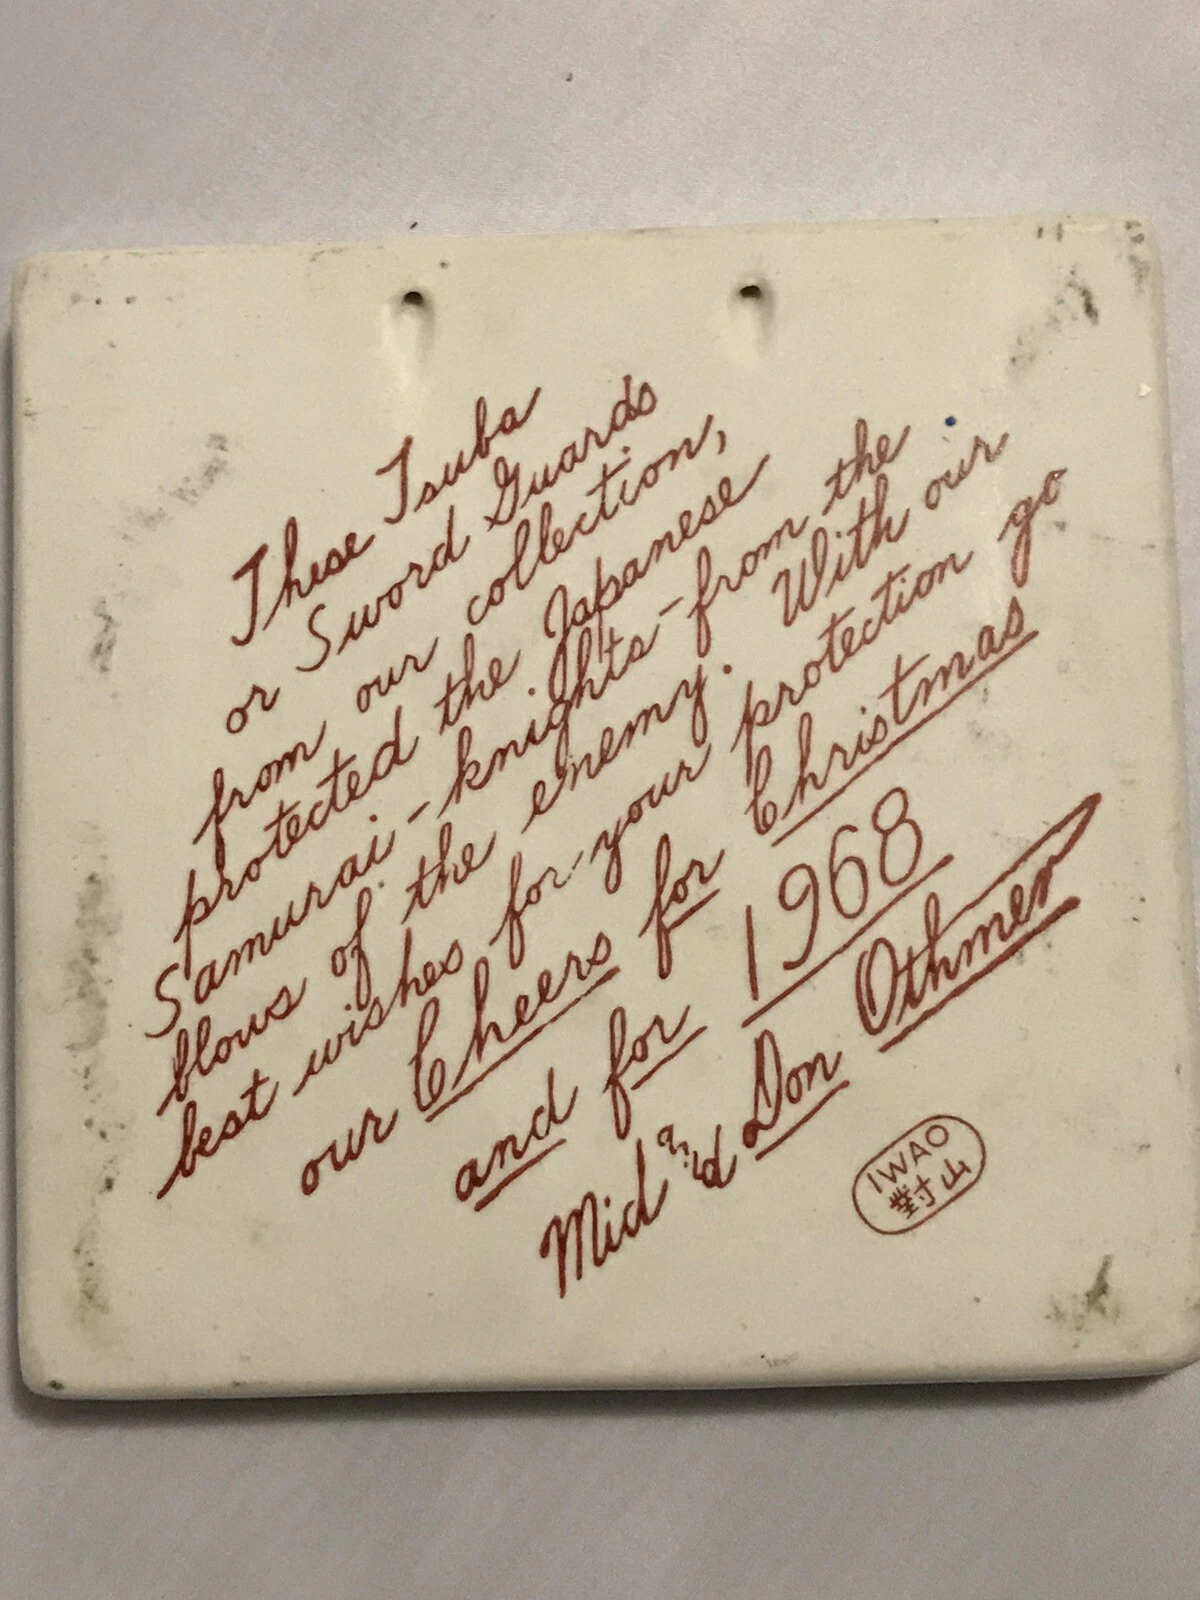 These Tsuba
or Sword Guards
from our collection,
protected the Japanese
Samurai-knights-from the
blows of the enemy. With our
best wishes for your protection go
our Cheers for Christmas
and for 1968
Mid and Don Othmer
IWAO
對山